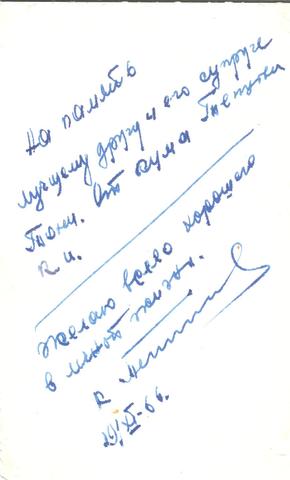 На память
лучшему другу и его супруге
Тони. От кума Тепуна
К и.
Желаю всего хорошего
в личной жизни.
К.
XI-66.